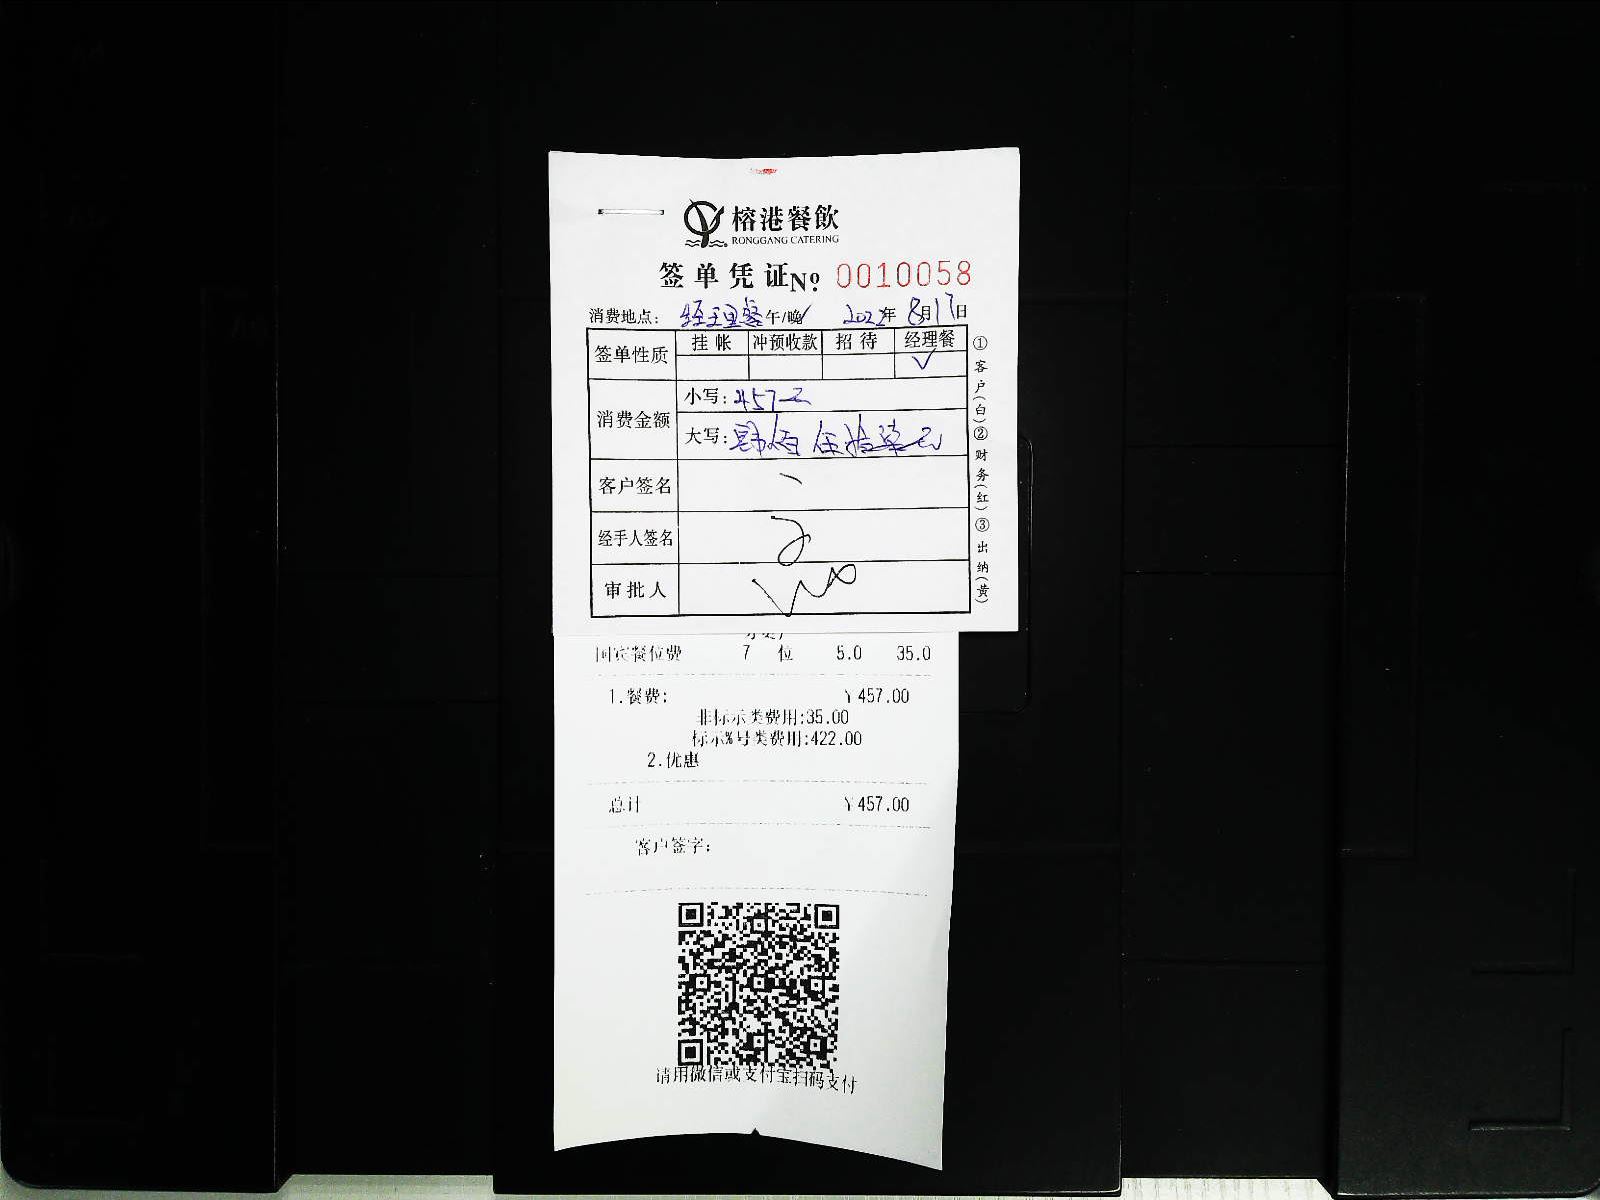 榕港餐飲
RONGGANG CATERING
签单凭证№ 0010058
消费地点: 经理餐 午/晚 2022年8月17日
签单性质 挂帐 冲预收款 招待 经理餐
√
消费金额 小写: 457元
大写: 肆佰伍拾柒元
客户签名
经手人签名
审批人
①客户(白)②财务(红)③出纳(黄)
国宾餐位费 7 位 5.0 35.0
1.餐费: ¥457.00
非标示类费用:35.00
标示%号类费用:422.00
2.优惠
总计 ¥457.00
客户签字:
请用微信或支付宝扫码支付